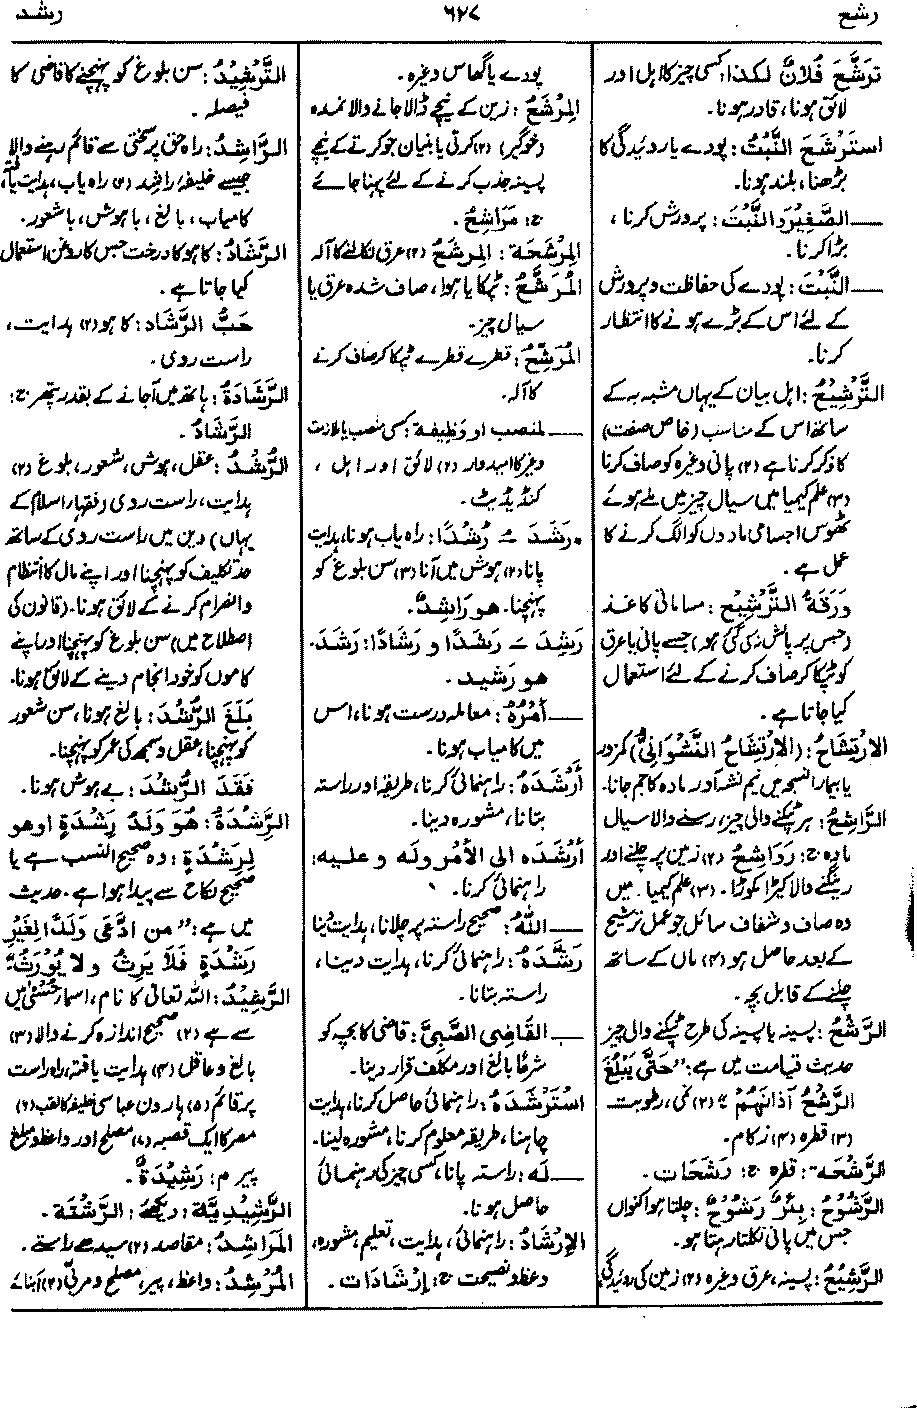 رشح
۶۲۷
رشد
ترَشَّحَ فُلَانٌ لکذا: کسی چیز کا اہل اور
لائق ہونا، قادر ہونا۔
استَرْشَحَ النَّبْتُ: پودے یا روئیدگی کا
بڑھنا، بلند ہونا۔
— الصَّغِیْرَ والنَّبْتَ: پرورش کرنا،
بڑا کرنا۔
— النَّبْتَ: پودے کی حفاظت و پرورش
کے لئے اس کے بڑے ہونے کا انتظار
کرنا۔
التَّرْشِیْحُ: اہل بیان کے یہاں مشبہ بہ کے
ساتھ اس کے مناسب (خاص صفت)
کا ذکر کرنا ہے (۲) پانی وغیرہ کو صاف کرنا
(۳) علم کیمیا میں سیال چیز میں ملے ہوئے
ٹھوس اجسامی مادوں کو الگ کرنے کا
عمل ہے۔
وَرَقَةُ التَّرْشِیْحِ: مسامانی کاغذ
(جس پر پالش نہ کی گئی ہو) جسے پانی یا عرق
کو ٹپکا کر صاف کرنے کے لئے استعمال
کیا جاتا ہے۔
الارْتِشَاحُ: (الارْتِشَاحُ النَّشْوَانِیُّ) کمزور
یا بیمار انسجہ میں نیم نشہ آور مادہ کا جم جانا۔
الرَّاشِحُ: ہر ٹپکنے والی چیز، رسنے والا سیال
مادہ ج: رَوَاشِحُ (۲) زمین پر چلنے اور
رینگنے والا کیڑا مکوڑا۔ (۳) علم کیمیا۔ میں
وہ صاف و شفاف سائل جو عمل ترشیح
کے بعد حاصل ہو (۴) ماں کے ساتھ
چلنے کے قابل بچہ۔
الرَّشْحُ: پسینہ یا پسینہ کی طرح ٹپکنے والی چیز
حدیث قیامت میں ہے: "حَتّٰی یَبْلُغَ
الرَّشْحُ آذَانَهُمْ" (۲) نمی، رطوبت
(۳) قطرہ (۴) زکام۔
الرَّشْحَة: قطرہ ج: رَشَحَات۔
الرَّشُوْحُ: بِئْرٌ رَشُوْحٌ: چلتا ہوا کنواں
جس میں پانی نکلتا رہتا ہو۔
الرَّشِیْحُ: پسینہ، عرق وغیرہ (۲) زمین کی روئیدگی
پودے یا گھاس وغیرہ۔
المِرْشَحُ: زین کے نیچے ڈالا جانے والا نمدہ
(خوگیر) (۲) کرتی یا بنیان جو کرتے کے نیچے
پسینہ جذب کرنے کے لئے پہنا جائے
ج: مَرَاشِحُ۔
المِرْشَحَة: المِرشَحُ (۲) عرق نکالنے کا آلہ
المُرَشَّحُ: ٹپکا یا ہوا، صاف شدہ عرق یا
سیال چیز۔
المُرَشِّحُ: قطرے قطرے ٹپکا کر صاف کرنے
کا آلہ۔
— لمنصب او وَظِیفة: کسی منصب یا ملازمت
وغیرہ کا امیدوار (۲) لائق اور اہل،
کنڈیڈیٹ۔
• رَشَدَ ُ رُشْدًا: راہ یاب ہونا، ہدایت
پانا (۲) ہوش میں آنا (۳) سن بلوغ کو
پہنچنا۔ هو رَاشِدٌ۔
رَشِدَ َ رَشَدًا و رَشَادًا: رَشَدَ۔
هو رَشید۔
— أمْرُهُ: معاملہ درست ہونا، اس
میں کامیاب ہونا۔
أَرْشَدَهُ: راہنمائی کرنا، طریقہ اور راستہ
بتانا، مشورہ دینا۔
أرْشَدَه الی الأمْرِ وله و علیه:
راہنمائی کرنا۔
— اللهُ: صحیح راستہ پر چلانا، ہدایت دینا
رَشَّدَهُ: راہنمائی کرنا، ہدایت دینا،
راستہ بتانا۔
— القَاضِی الصَّبِیَّ: قاضی کا بچہ کو
شرعًا بالغ اور مکلف قرار دینا۔
اسْتَرْشَدَهُ: راہنمائی حاصل کرنا، ہدایت
چاہنا، طریقہ معلوم کرنا، مشورہ لینا۔
— لَه: راستہ پانا، کسی چیز کی رہنمائی
حاصل ہونا۔
الإرْشَادُ: راہنمائی، ہدایت، تعلیم، مشورہ،
وعظ و نصیحت ج: إرْشَادَات۔
التَّرْشِیْدُ: سن بلوغ کو پہنچنے کا قاضی کا
فیصلہ۔
الرَّاشِدُ: راہ حق پر سختی سے قائم رہنے والا
جیسے خلیفۂ راشِد (۲) راہ یاب، ہدایت یاب،
کامیاب، بالغ، باہوش، باشعور۔
الرَّشَادُ: کاہو کا درخت جس کا روغن استعمال
کیا جاتا ہے۔
حَبُّ الرَّشَاد: کاہو (۲) ہدایت،
راست روی۔
الرَّشَادَةُ: ہاتھ میں آجانے کے بقدر پتھر ج:
الرَّشَادُ۔
الرُّشْدُ: عقل، ہوش، شعور، بلوغ (۲)
ہدایت، راست روی (فقہاء اسلام کے
یہاں) دین میں راست روی کے ساتھ
حد تکلیف کو پہنچنا اور اپنے مال کا انتظام
و انصرام کرنے کے لائق ہونا۔ (قانون کی
اصطلاح میں) سن بلوغ کو پہنچنا اور اپنے
کاموں کو خود انجام دینے کے لائق ہونا۔
بَلَغَ الرُّشْدَ: بالغ ہونا، سن شعور
کو پہنچنا، عقل و سمجھ کی عمر کو پہنچنا۔
فَقَدَ الرُّشْدَ: بے ہوش ہونا۔
الرِّشْدَةُ: هُوَ وَلَدُ رِشْدَةٍ او هو
لِرِشْدَةٍ: وہ صحیح النسب ہے یا
صحیح نکاح سے پیدا ہوا ہے۔ حدیث
میں ہے: "مَن ادَّعٰی وَلَدًا لِغَیْرِ
رِشْدَةٍ فَلَا یَرِثُ ولا یُوْرَثُ"
الرَّشِیْدُ: اللہ تعالیٰ کا نام، اسماء حُسنٰی میں
سے ہے (۲) صحیح اندازہ کرنے والا (۳)
بالغ و عاقل (۴) ہدایت یافتہ، راہ راست
پر قائم (۵) ہارون عباسی خلیفہ کا لقب (۶)
مصر کا ایک قصبہ (۸) مصلح اور واعظ و مبلغ
پیر م: رَشِیْدَةٌ۔
الرَّشِیْدِیَّة: دیکھئے: الرَّشْتَة۔
المَرَاشِدُ: مقاصد (۲) سیدھے راستے۔
المُرْشِدُ: واعظ، پیر، مصلح و مربی (۲) آبنائے